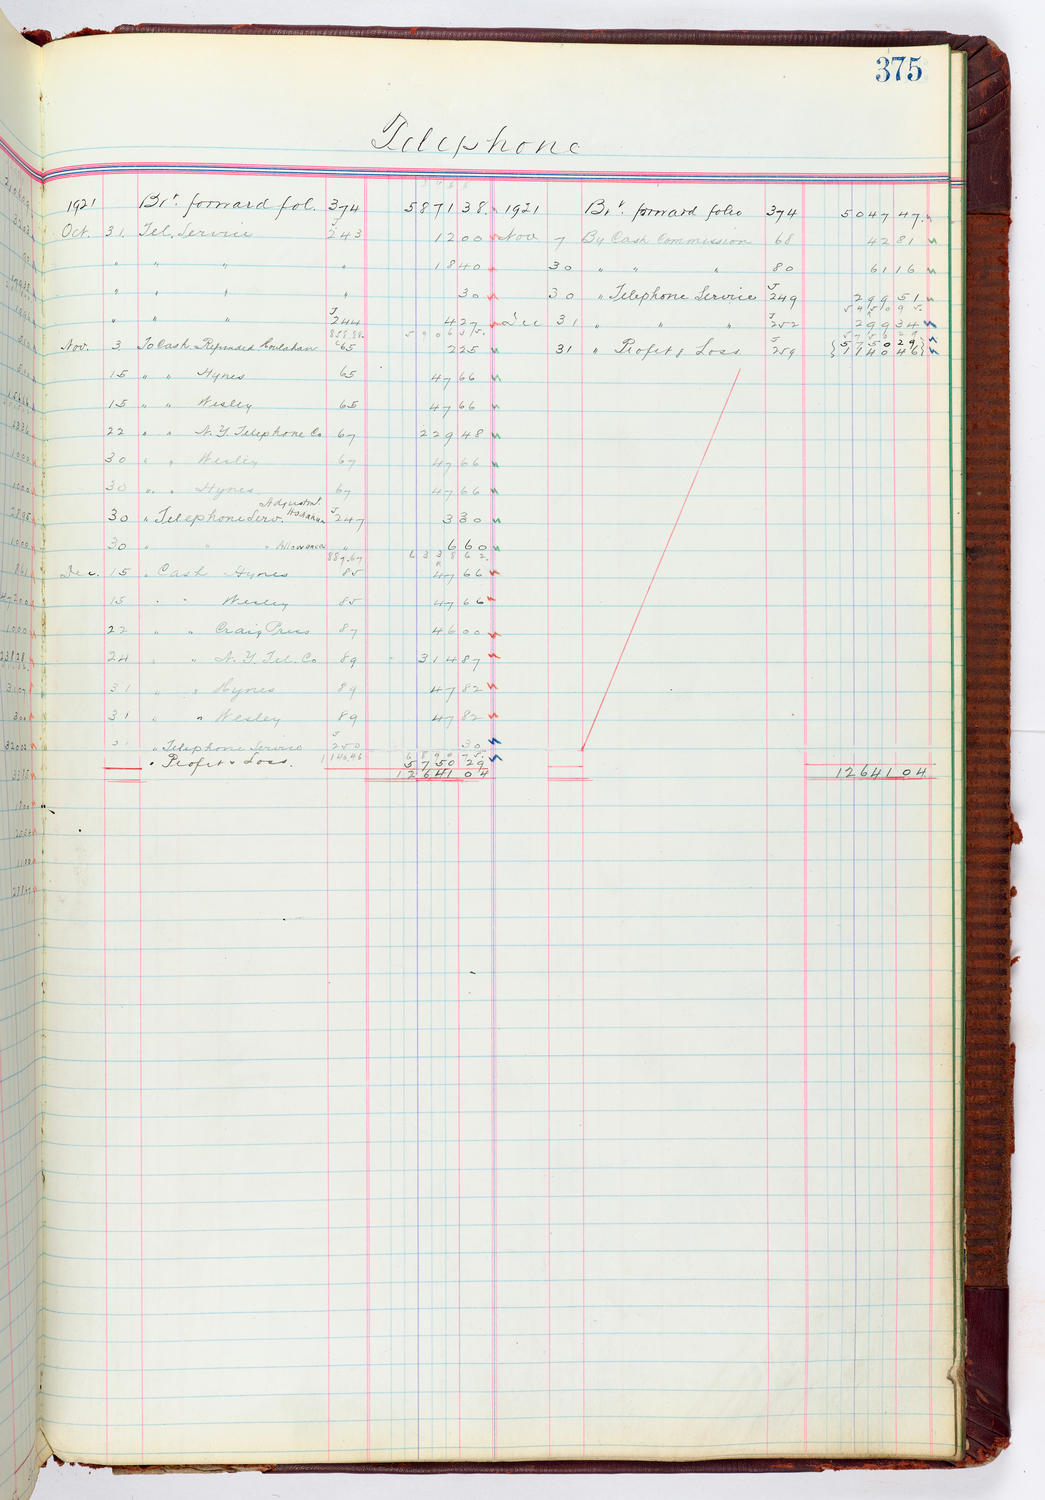 375
Telephone
1921 Brt. forward fol. 374 5871 38. 1921 Brt. forward folio 374 5047 47
Oct. 31. Tel. Service J 243 12 00 Nov 7 By Cash Commission 68 42 81
" " " " 18 40 30 " " " 80 61 16
" " " " 30 30 " Telephone Service J 249 299 51
5450 95.
" " " J 244 4 27 Dec 31 " " " J 252 299 34
858.88. 5906 35.
Nov. 3 To Cash Refunded Houlahan C65 2 25 31 " Profit & Loss J 259 { 5750 29 1140 46 }
15 " " Hynes 65 47 66
15 " " Wesley 65 47 66
22 " " N.Y. Telephone Co 67 229 48
30 " " Wesley 67 47 66
30 " " Hynes 67 47 66
Adjustmt.
30 " Telephone Serv. J 247 3 30
30 " " " Allowance " 6 60
889.67 6338 62.
Dec. 15 " Cash Hynes 85 47 66
15 " " Wesley 85 47 66
22 " " Craig Press 87 46 00
24 " " N.Y. Tel. Co 89 314 87
31 " " Hynes 89 47 82
31 " " Wesley 89 47 82
31 " Telephone Service J 250 30
1140.46 6890 75.
" Profit & Loss. 5750 29
12641 04 12641 04